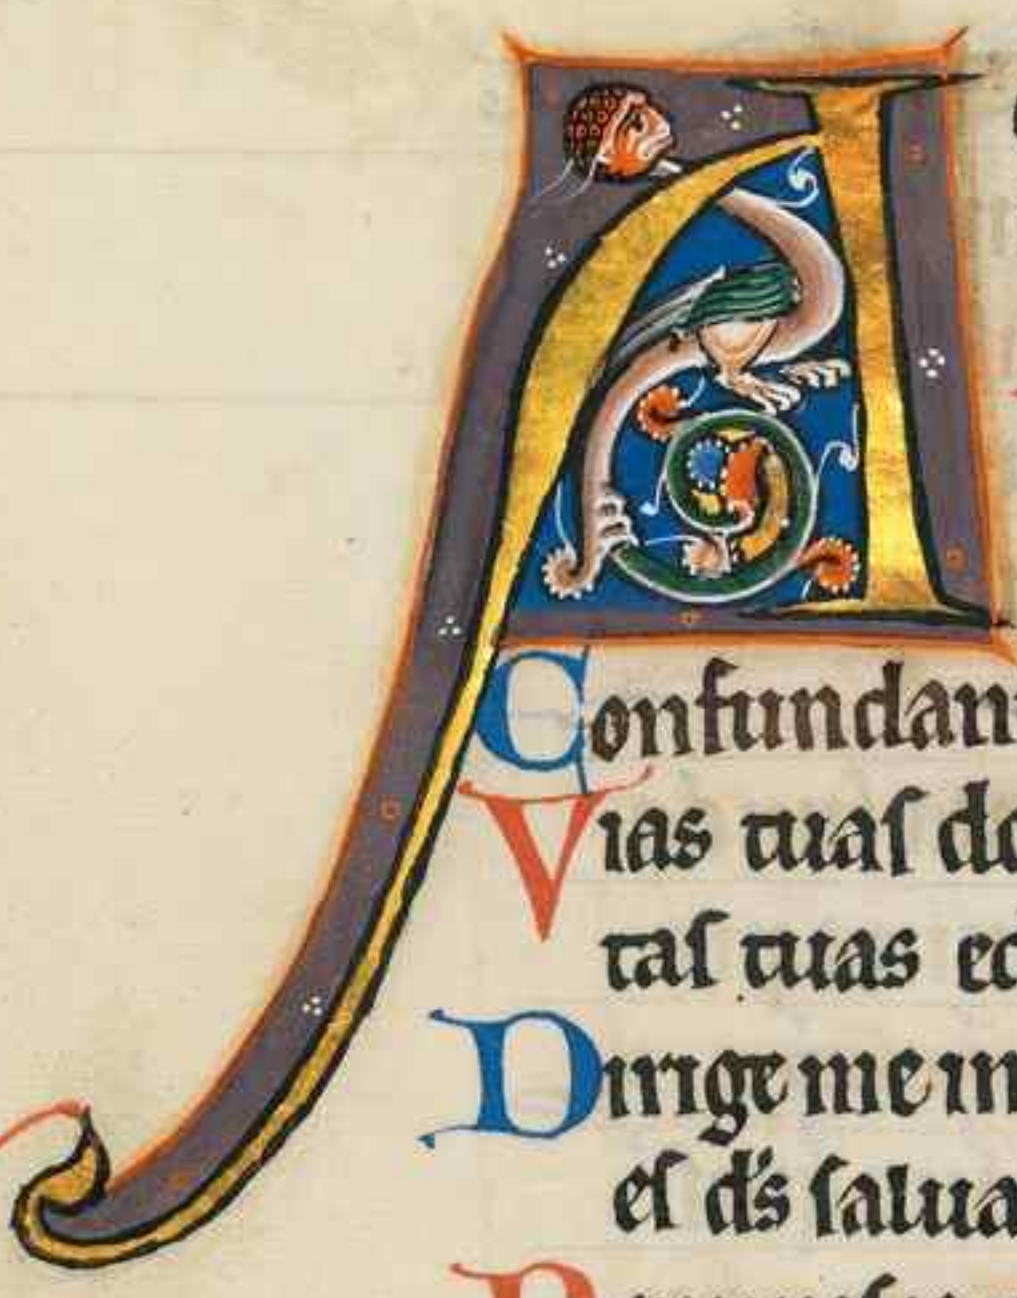 A
Confundan
Vias tuaſ do
taſ tuas ed
Dirige me in
eſ d̄s ſalua
R